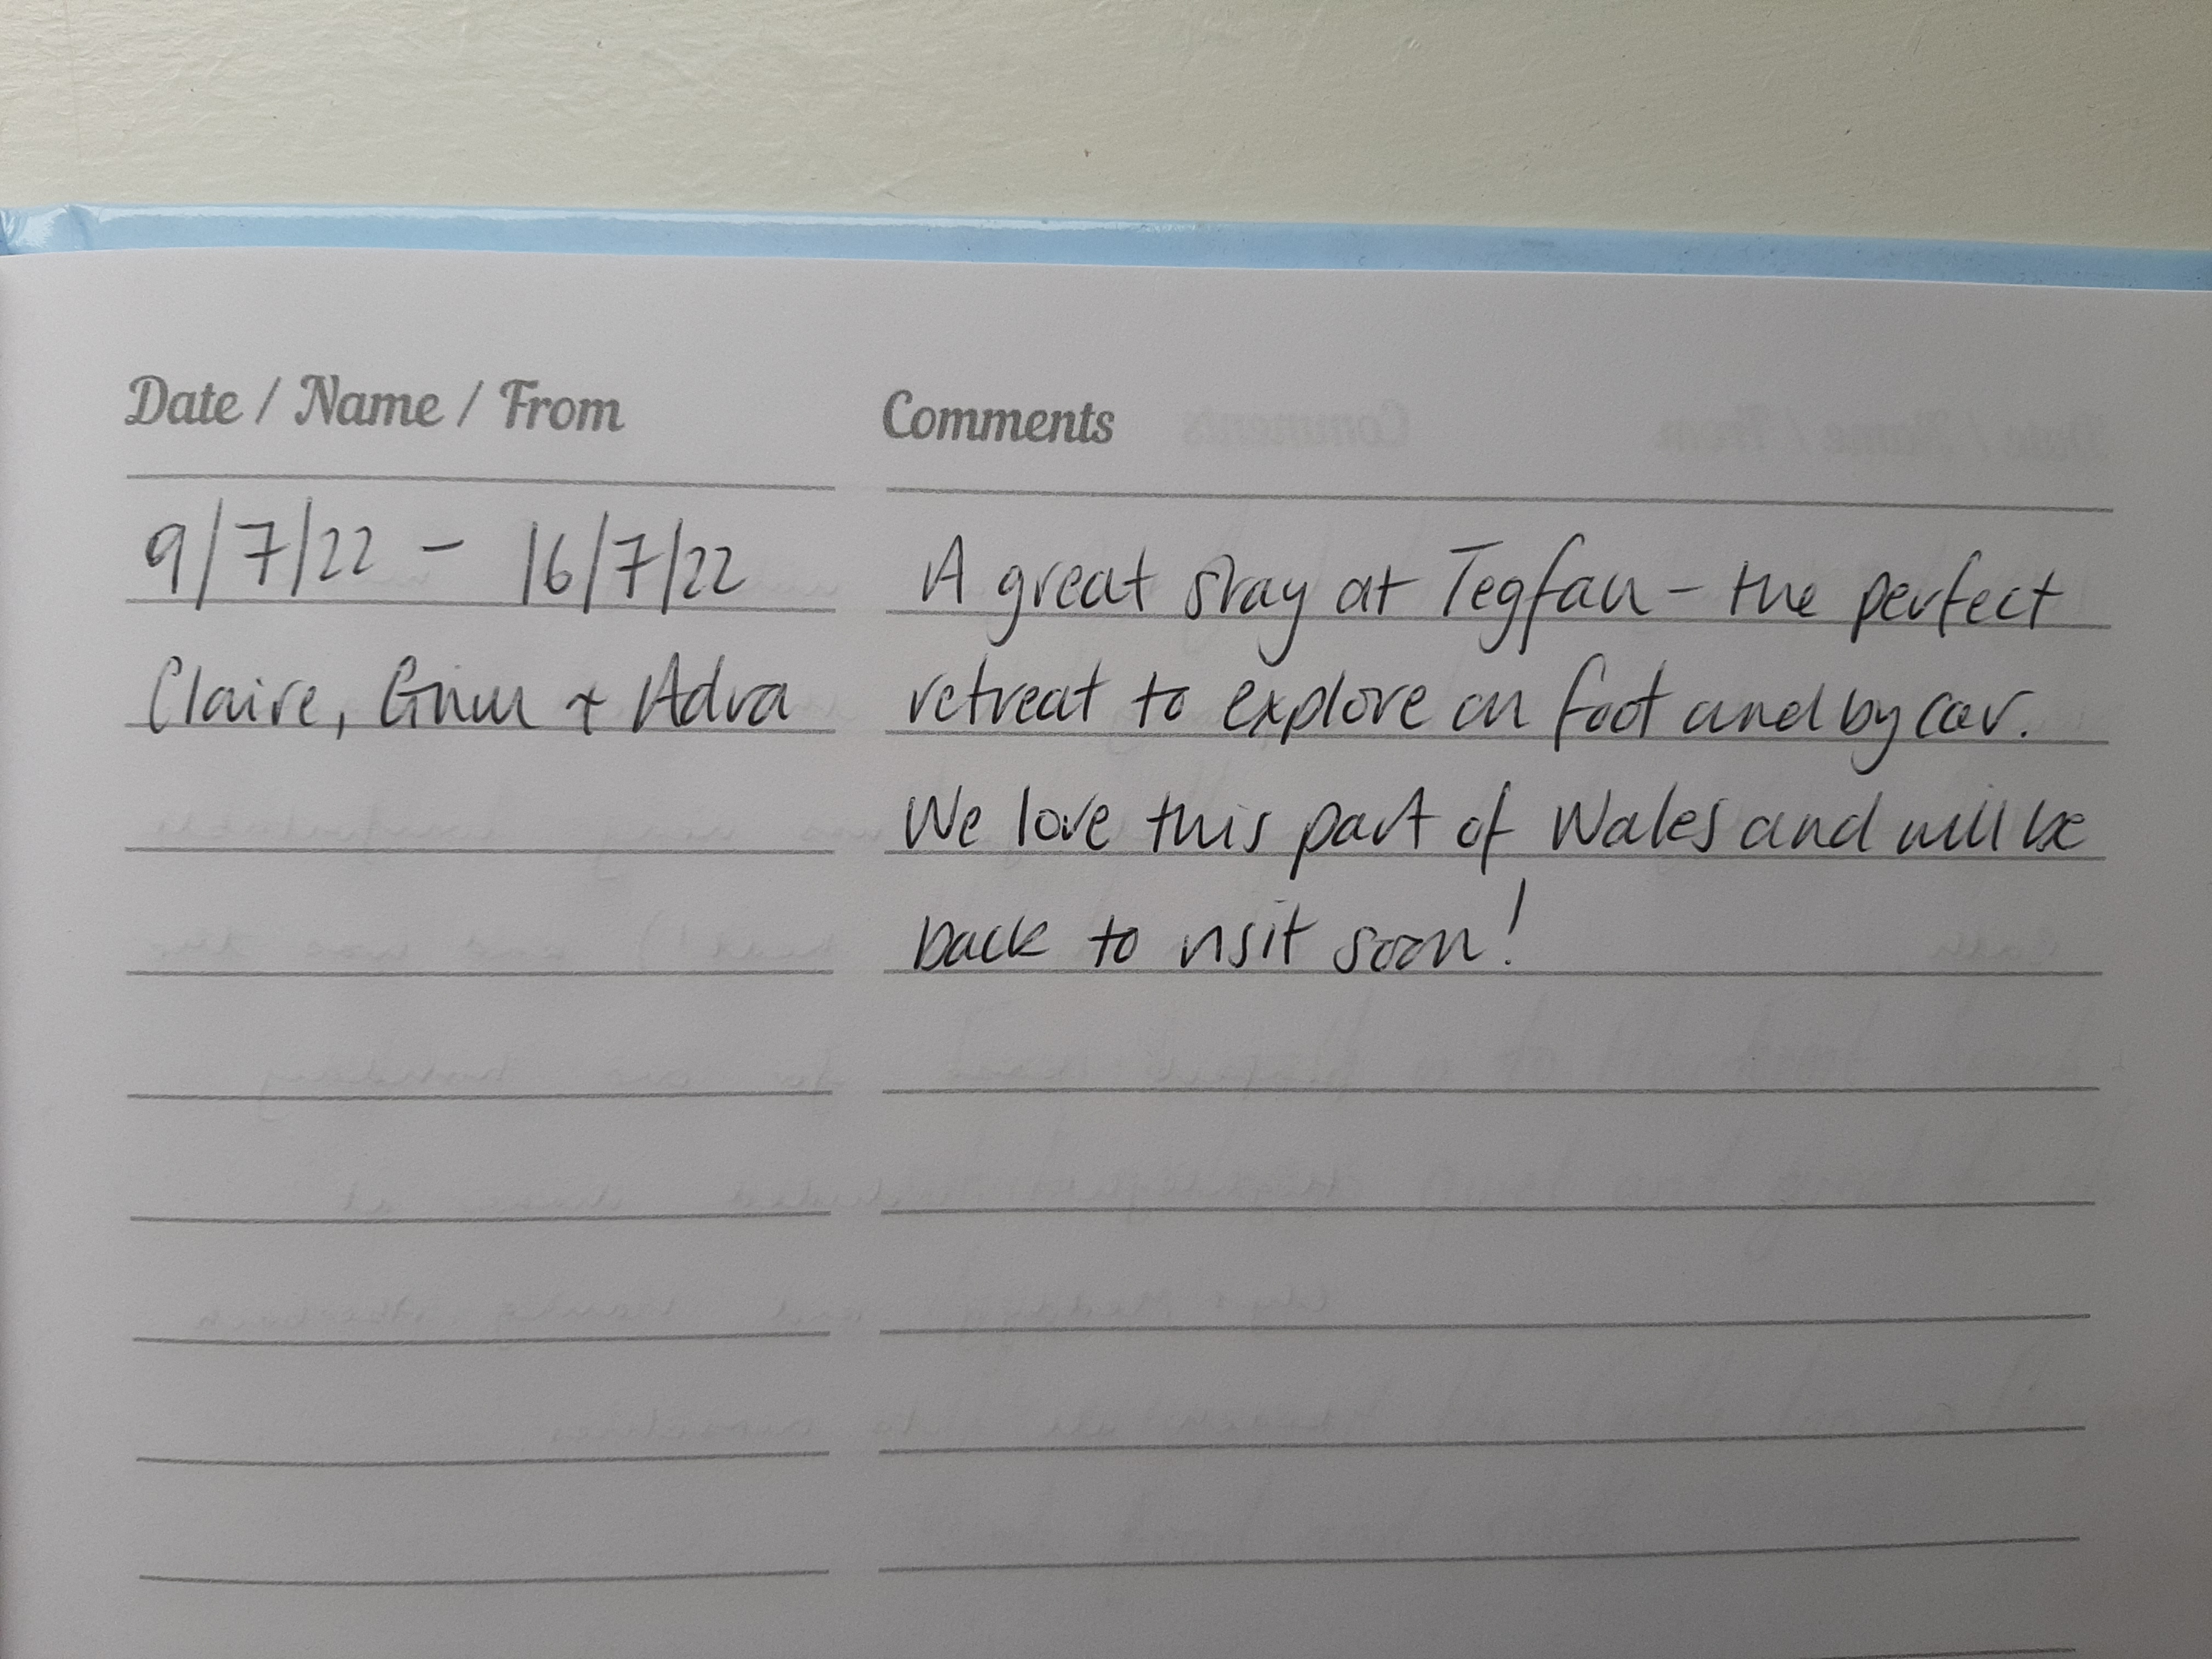 Date / Name / From Comments
9/7/22 - 16/7/22
Claire, + Adra
A great stay at Tegfan - the perfect
retreat to explore on foot and by car.
We love this part of Wales and will be
back to visit soon!